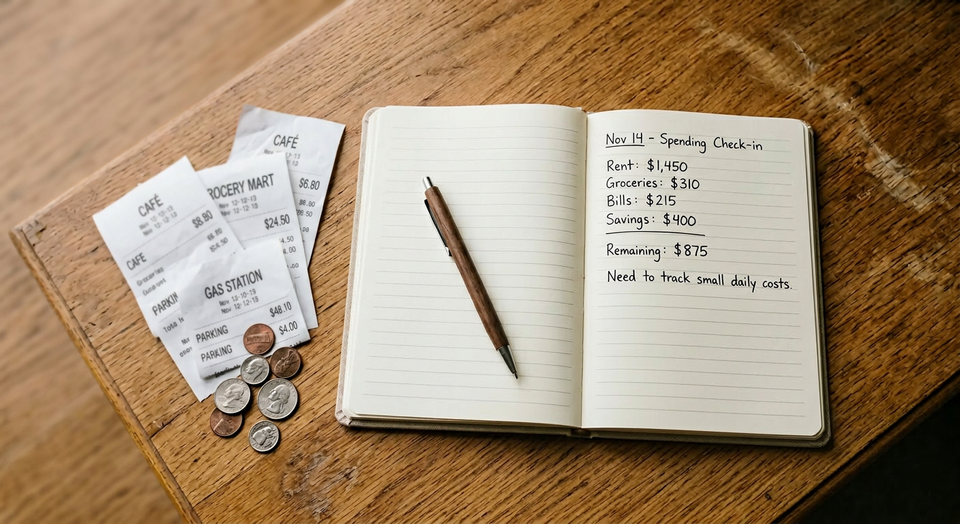 CAFÉ
$6.80
GROCERY MART
$24.50
CAFÉ
$8.80
CAFE
GAS STATION
PARKING $48.10
PARKING $4.00
Nov 14 - Spending Check-in
Rent: $1,450
Groceries: $310
Bills: $215
Savings: $400
Remaining: $875
Need to track small daily costs.